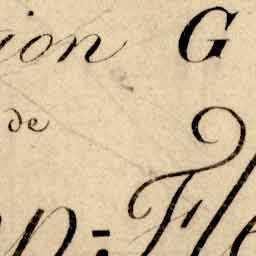 ion G
de
p=Fle